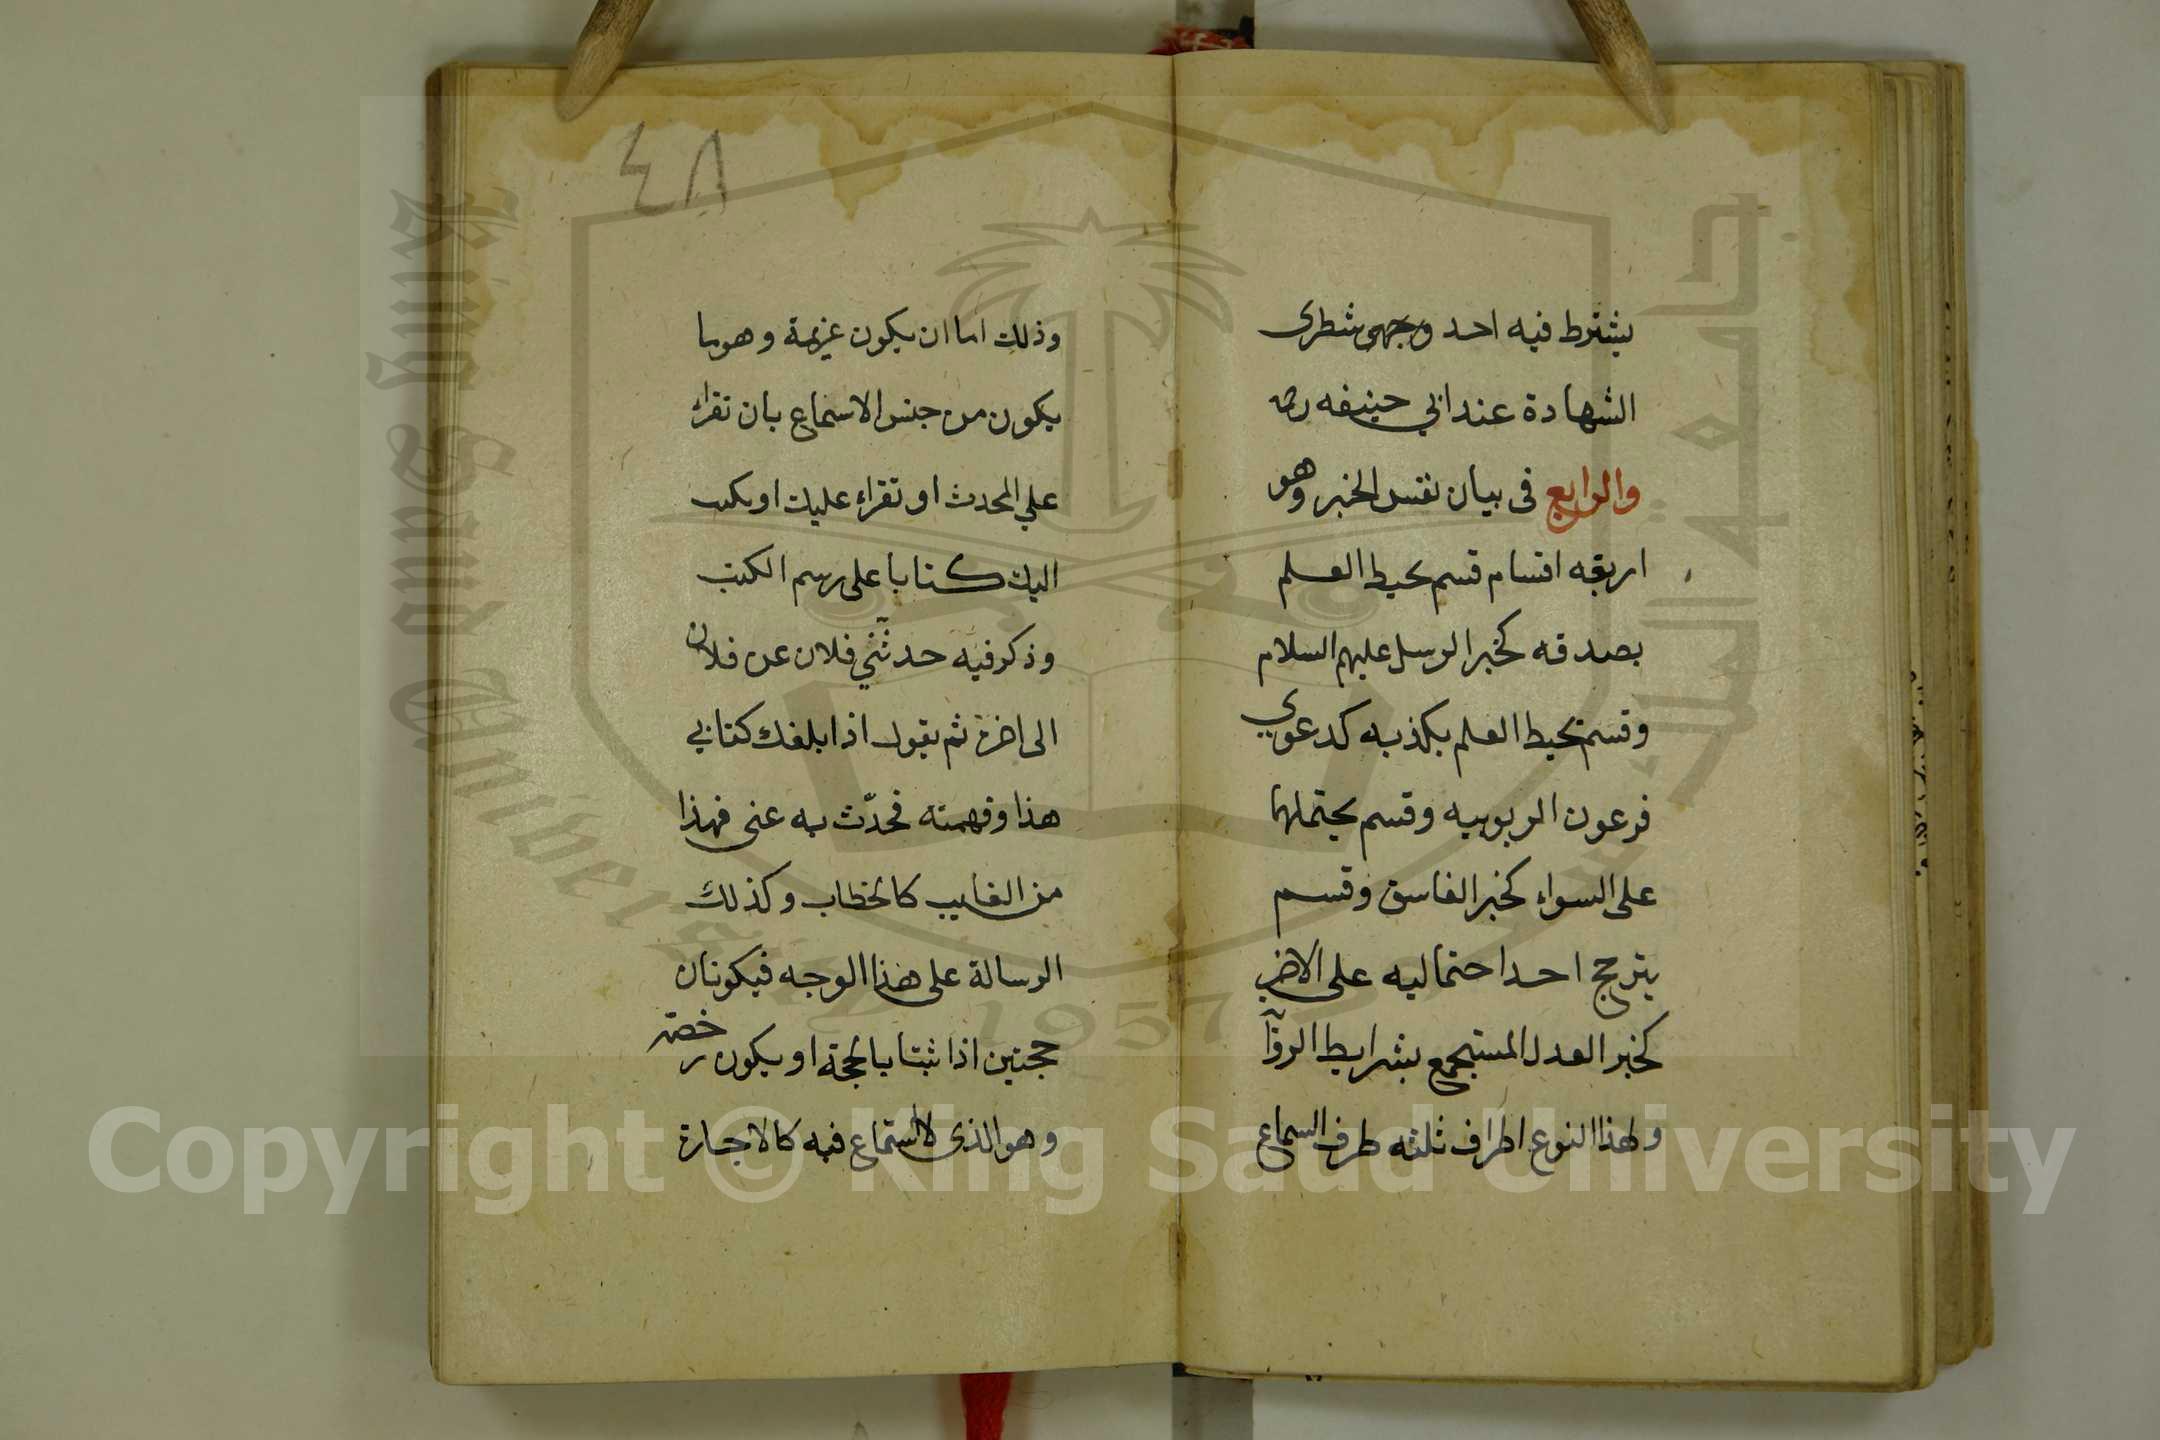 يشترط فيه احد وجهى شطرى
الشهادة عند ابي حنيفه رحه
والرابع فى بيان نفس الخبر وهو
اربعه اقسام قسم يحيط العلم
بصدقه كخبر الرسل عليهم السلام
وقسم يحيط العلم بكذبه كدعوي
فرعون الربوبيه وقسم يحتملهما
على السواء كخبر الفاسق وقسم
يترجح احد احتماليه على الاخر
كخبر العدل المستجمع بشرايط الروآ
ولهذا النوع اطراف ثلثه طرف السماع
٤٨
وذلك اما ان يكون عزيمة وهو ما
يكون من جنس الاسماع بان تقراء
علي المحدث او تقراء عليك او يكتب
اليك كتابا على رسم الكتب
وذكر فيه حدثني فلان عن فلان
الى اخره ثم يقول اذا بلغك كتابي
هذا وفهمته فحدّث به عنى فهذا
من الغايب كالخطاب وكذلك
الرسالة على هذا الوجه فيكونان
حجتين اذا ثبتا بالحجة او يكون رخصة
وهو الذى لا استماع فيه كالاجازة
جامعة الملك سعود
King Saud University
1957
Copyright © King Saud University